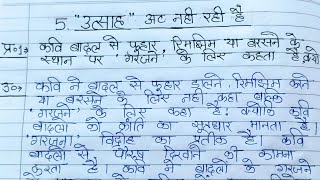 5. "उत्साह" अट नहीं रही है
प्र०१:- कवि बादल से फुहार, रिमझिम या बरसने के
स्थान पर 'गरजने' के लिए कहता है, क्यों
उ०:- कवि ने बादल से फुहार डालने, रिमझिम करने
या बरसने के लिए नहीं कहा बल्कि
'गरजने' के लिए कहा है; क्योंकि कवि
बादलों को क्रांति का सूत्रधार मानता है।
'गरजना' विद्रोह का प्रतीक है। कवि
बादलों से पौरुष दिखाने की कामना
करता है। कवि ने बादलों के गरजने